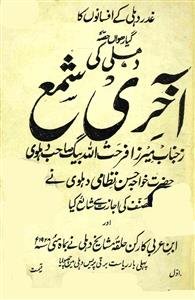 غدر دہلی کے افسانوں کا
گیارھواں حصہ
دہلی کی
آخری شمع
از جناب میرزا فرحت اللہ بیگ صاحب دہلوی
حضرت خواجہ حسن نظامی دہلوی نے
مصنف کی اجازت سے شائع کیا
اور
ابن عربی کارکن حلقہ مشائخ دہلی نے ماہ مئی
پہلی بار ریاست برقی پریس دہلی میں
اول
قیمت